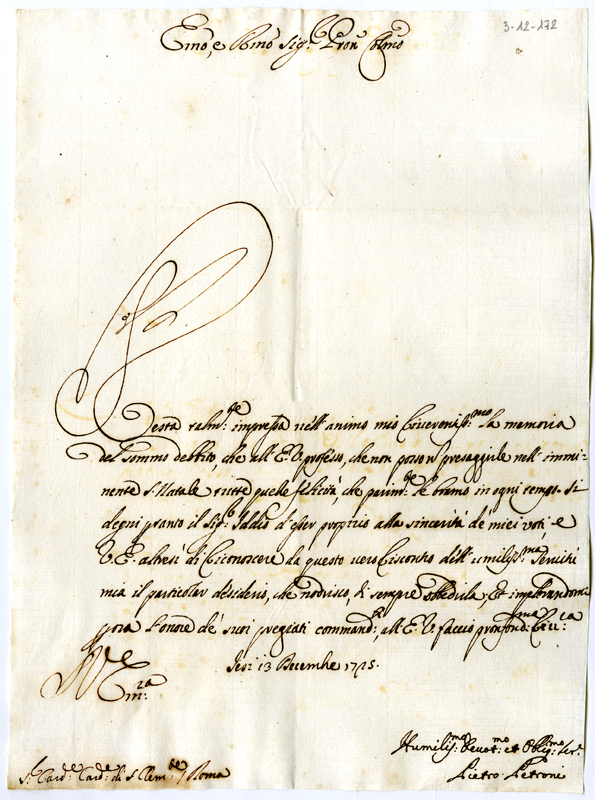 3-12-172
Emo, e Rmo Sig.r Pron Colmo
Resta talm.te impressa nell'animo mio la memoria
del sommo debito, che all'E. V. professo, che non posso presaggirle nell'immi-
nente S. Natale tutte quelle felicità, che le bramo in ogni tempo. Si
degni pertanto il Sig.r Iddio d'esser propizio alla sincerità de' miei voti, e
V. E. altresì di riconoscere da questo vero riscontro dell'umiliss.ma servitù
mia il particolar desiderio, che nodrisco, di sempre obbedirla, et
l'onore de' suoi pregiati command.i, all'E. V. faccio profond.ma
Jesi 13 Decembre 1725.
Em.za
Humiliss.mo Devot.mo et Oblig.mo Ser.
S.r Card.e di S. Clem.te / Roma
Pietro Petroni